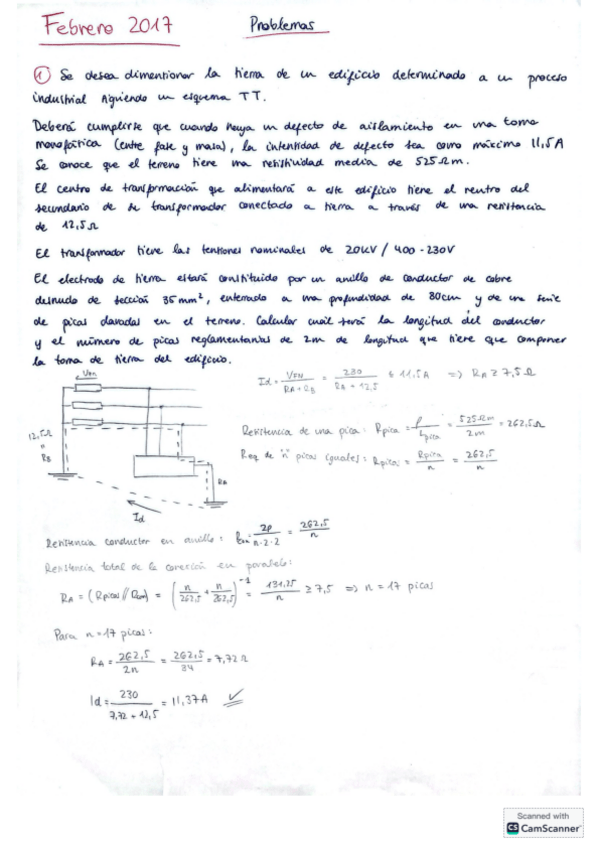 Febrero 2017
Problemas
1 Se desea dimentionar la tierra de un edificio determinado a un proceso
industrial siguiendo un esquema TT.
Deberá cumplirse que cuando haya un defecto de aislamiento en una toma
monofásica (entre fase y masa), la intensidad de defecto sea como máximo 11,5A
Se conoce que el terreno tiene una resistividad media de 525Ωm.
El centro de transformación que alimentará a este edificio tiene el neutro del
secundario de su transformador conectado a tierra a través de una resistencia
de 12,5Ω
El transformador tiene las tensiones nominales de 20kV / 400-230V
El electrodo de tierra estará constituido por un anillo de conductor de cobre
desnudo de sección 35mm², enterrado a una profundidad de 80cm y de una serie
de picas clavadas en el terreno. Calcular cuál será la longitud del conductor
y el número de picas reglamentarias de 2m de longitud que tiene que componer
la toma de tierra del edificio.
VFN
Id = VFN / (RA+RB) = 230 / (RA+12,5) ≤ 11,5A => RA ≥ 7,5Ω
12,5Ω
=
RB
RA
Id
Resistencia de una pica: Rpica = ρ / Lpica = 525Ωm / 2m = 262,5Ω
Req de "n" picas iguales: Rpicas = Rpica / n = 262,5 / n
Resistencia conductor en anillo: = 2ρ / n·2·2 = 262,5 / n
Resistencia total de la conexión en paralelo:
RA = (Rpicas // Rcon) = (n/262,5 + n/262,5)^-1 = 131,25 / n ≥ 7,5 => n = 17 picas
Para n = 17 picas:
RA = 262,5 / 2n = 262,5 / 34 = 7,72Ω
Id = 230 / (7,72 + 12,5) = 11,37A ✓
Scanned with
CS CamScanner